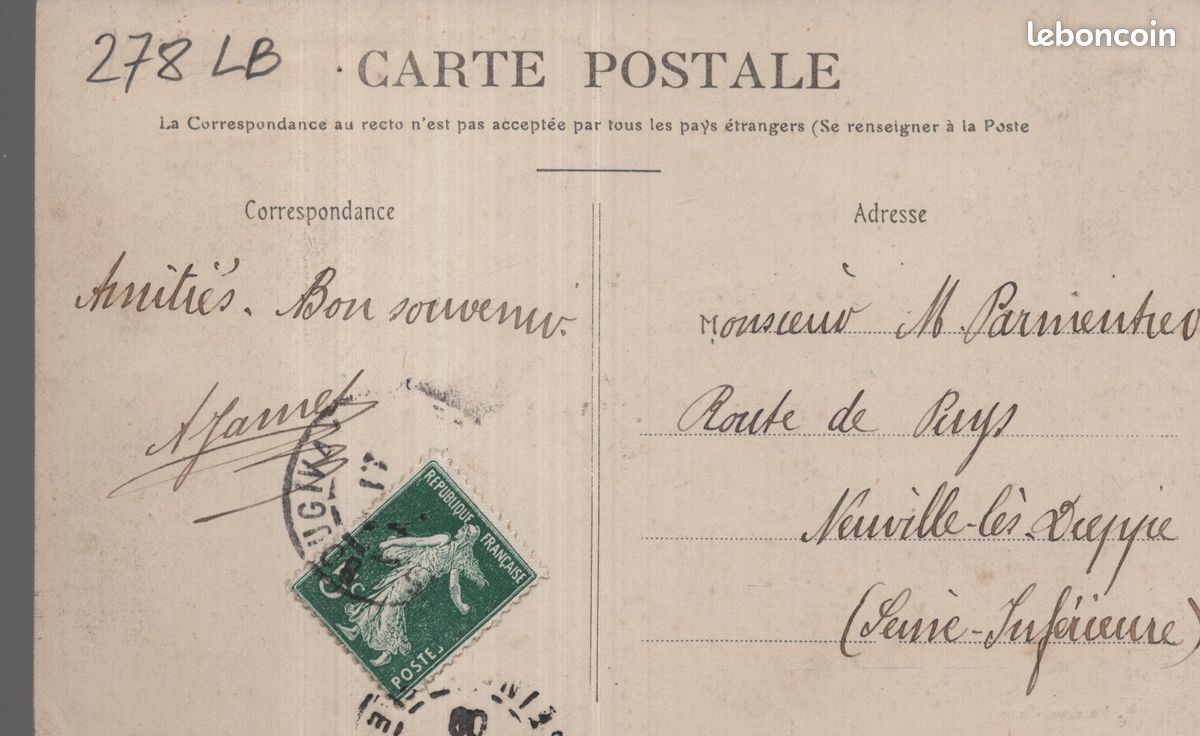 leboncoin
278 LB
CARTE POSTALE
La Correspondance au recto n'est pas acceptée par tous les pays étrangers (Se renseigner à la Poste
Correspondance
Amitiés. Bon souvenir.
A Jamet
REPUBLIQUE
FRANÇAISE
5c
POSTES
Adresse
Monsieur M. Parmentier
Route de Puys
Neuville-lès-Dieppe
(Seine-Inférieure)